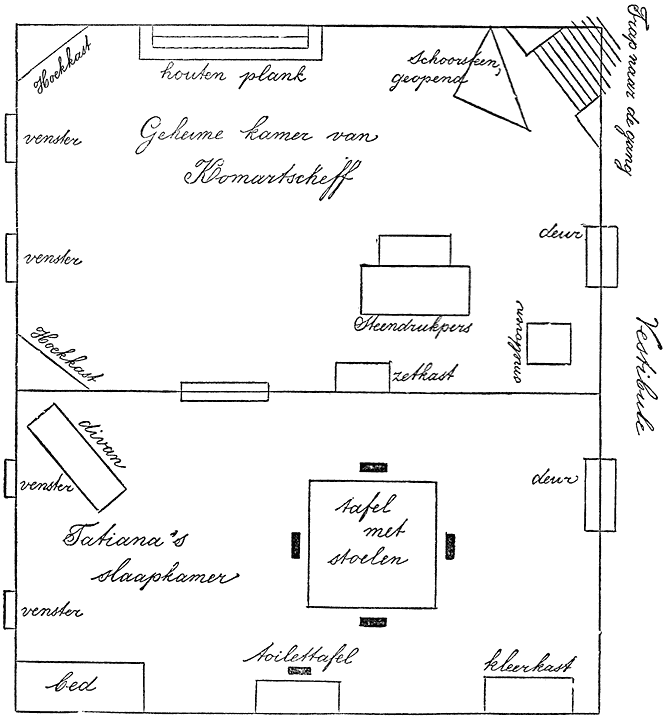 Hoekkast
houten plank
Schoorsteen,
geopend
Trap naar de gang
venster
Geheime kamer van
Komartscheff
venster
deur
Steendrukpers
smeltoven
Vestibule
Hoekkast
zetkast
divan
venster
tafel
met
stoelen
deur
Tatiana's
slaapkamer
venster
toilettafel
kleerkast
bed